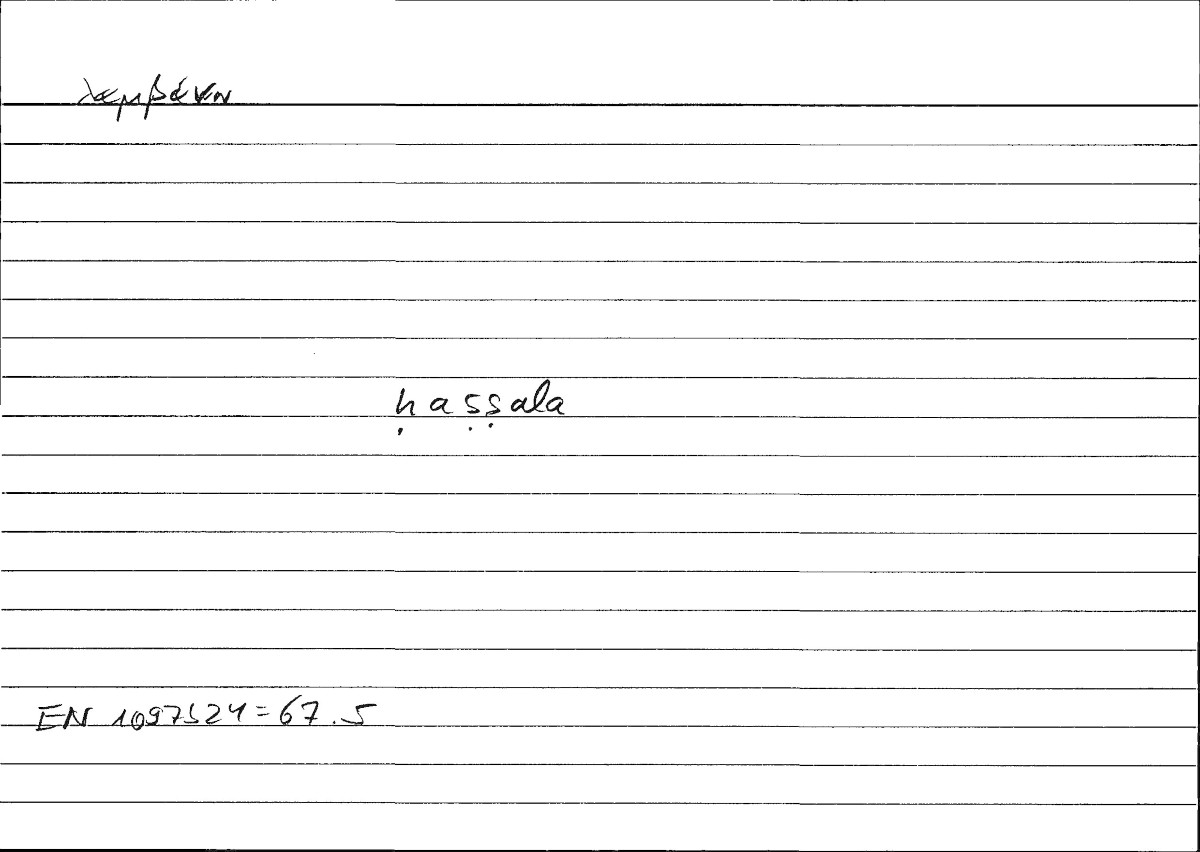 λαμβάνω
ḥaṣṣala
EN 1097b24=67.5